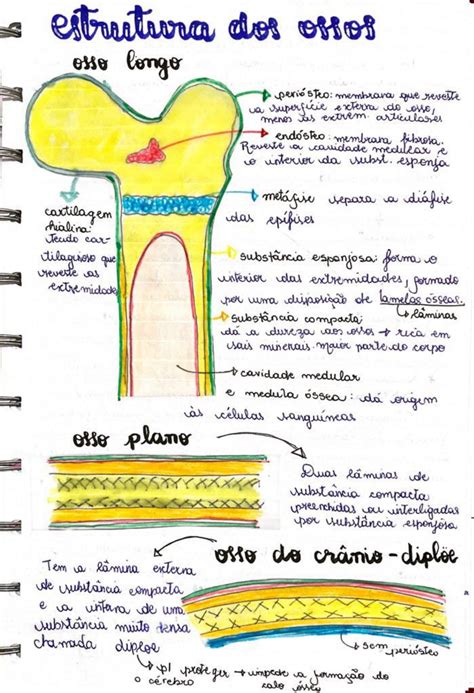 estrutura dos ossos
osso longo
periósteo: membrana que reveste
a superfície externa do osso,
menos as extrem. articulares
endósteo: membrana fibrosa.
Reveste a cavidade medular e
o interior da subst. esponjosa
metáfise separa a diáfise
das epífises
cartilagem
hialina:
Tecido car-
tilaginoso que
reveste as
extremidades
substância esponjosa: forma o
interior das extremidades, formado
por uma disposição de lamelas ósseas.
lâminas
substância compacta:
dá a dureza aos ossos → rica em
sais minerais. maior parte do corpo
cavidade medular
e medula óssea: dá origem
às células sanguíneas
osso plano
Duas lâminas de
substância compacta
preenchidas ou interligadas
por substância esponjosa
osso do crânio - díploe
Tem a lâmina externa
de substância compacta
e a interna de uma
substância muito densa
chamada díploe
sem periósteo
p/ proteger → impede a formação do
o cérebro
calo ósseo